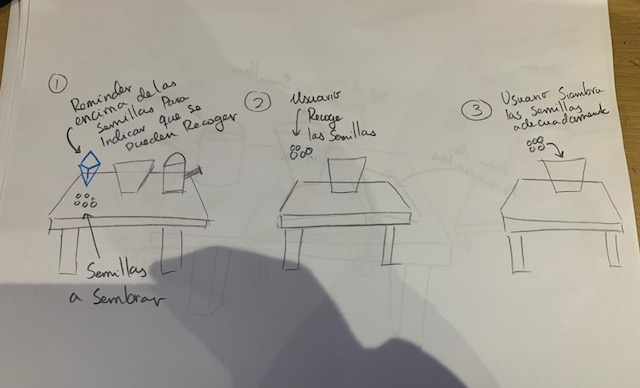 1
Reminder
encima de las
Semillas Para
Indicar que se
pueden Recoger
Semillas
a Sembrar
2
Usuario
Recoge
las Semillas
3
Usuario Siembra
las Semillas
adecuadamente